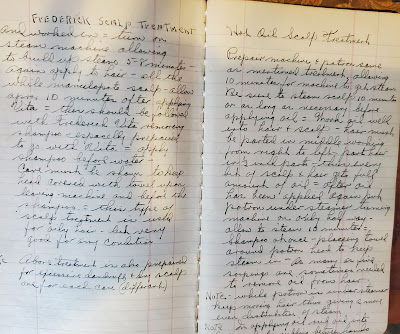 FREDERICK SCALP TREATMENT
and worked in = turn on
steam machine allowing
to build up steam 5-8 minutes -
Again apply to hair - all the
while manipulate scalp - allow
about 10 minutes after applying
Vita = this should be followed
with Frederick Vita removing
shampoo - especially prepared
to go with Vita = apply
shampoo before water -
Care must be shown to keep
head covered with towel upon
leaving machine and before the
shampoo = this type of
scalp treatment is used
for oily hair - but very
good for any condition
Above treatments are also prepared
for excessive dandruff & dry scalp
one for each case (different)
Hot Oil Scalp Treatment
Prepare machine & patron same
as mentioned treatment, allowing
10 minutes for machine to get steam
Be sure to steam scalp 10 minutes
or as long as necessary before
applying oil = Work oil well
into hair & scalp = hair must
be parted in middle working
from right to left part hair
in ½ inch parts - thus every
bit of scalp & hair gets full
amount of oil = after oil
has been applied again put
patron under steamer turning
machine on only half way -
allow to steam 10 minutes =
Shampoo at once - placing towel
around patron head to keep
steam in - As many as five
soapings are sometimes needed
to remove oil from hair
NOTE - while patron is under steamer
keep moving hair thus giving a more
even distribution of steam
Note In applying oil rub out into